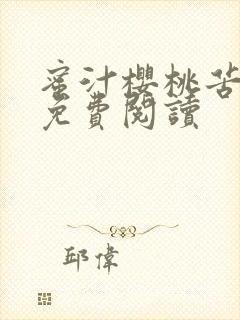 蜜汁櫻桃苦
免費閱讀
邱偉